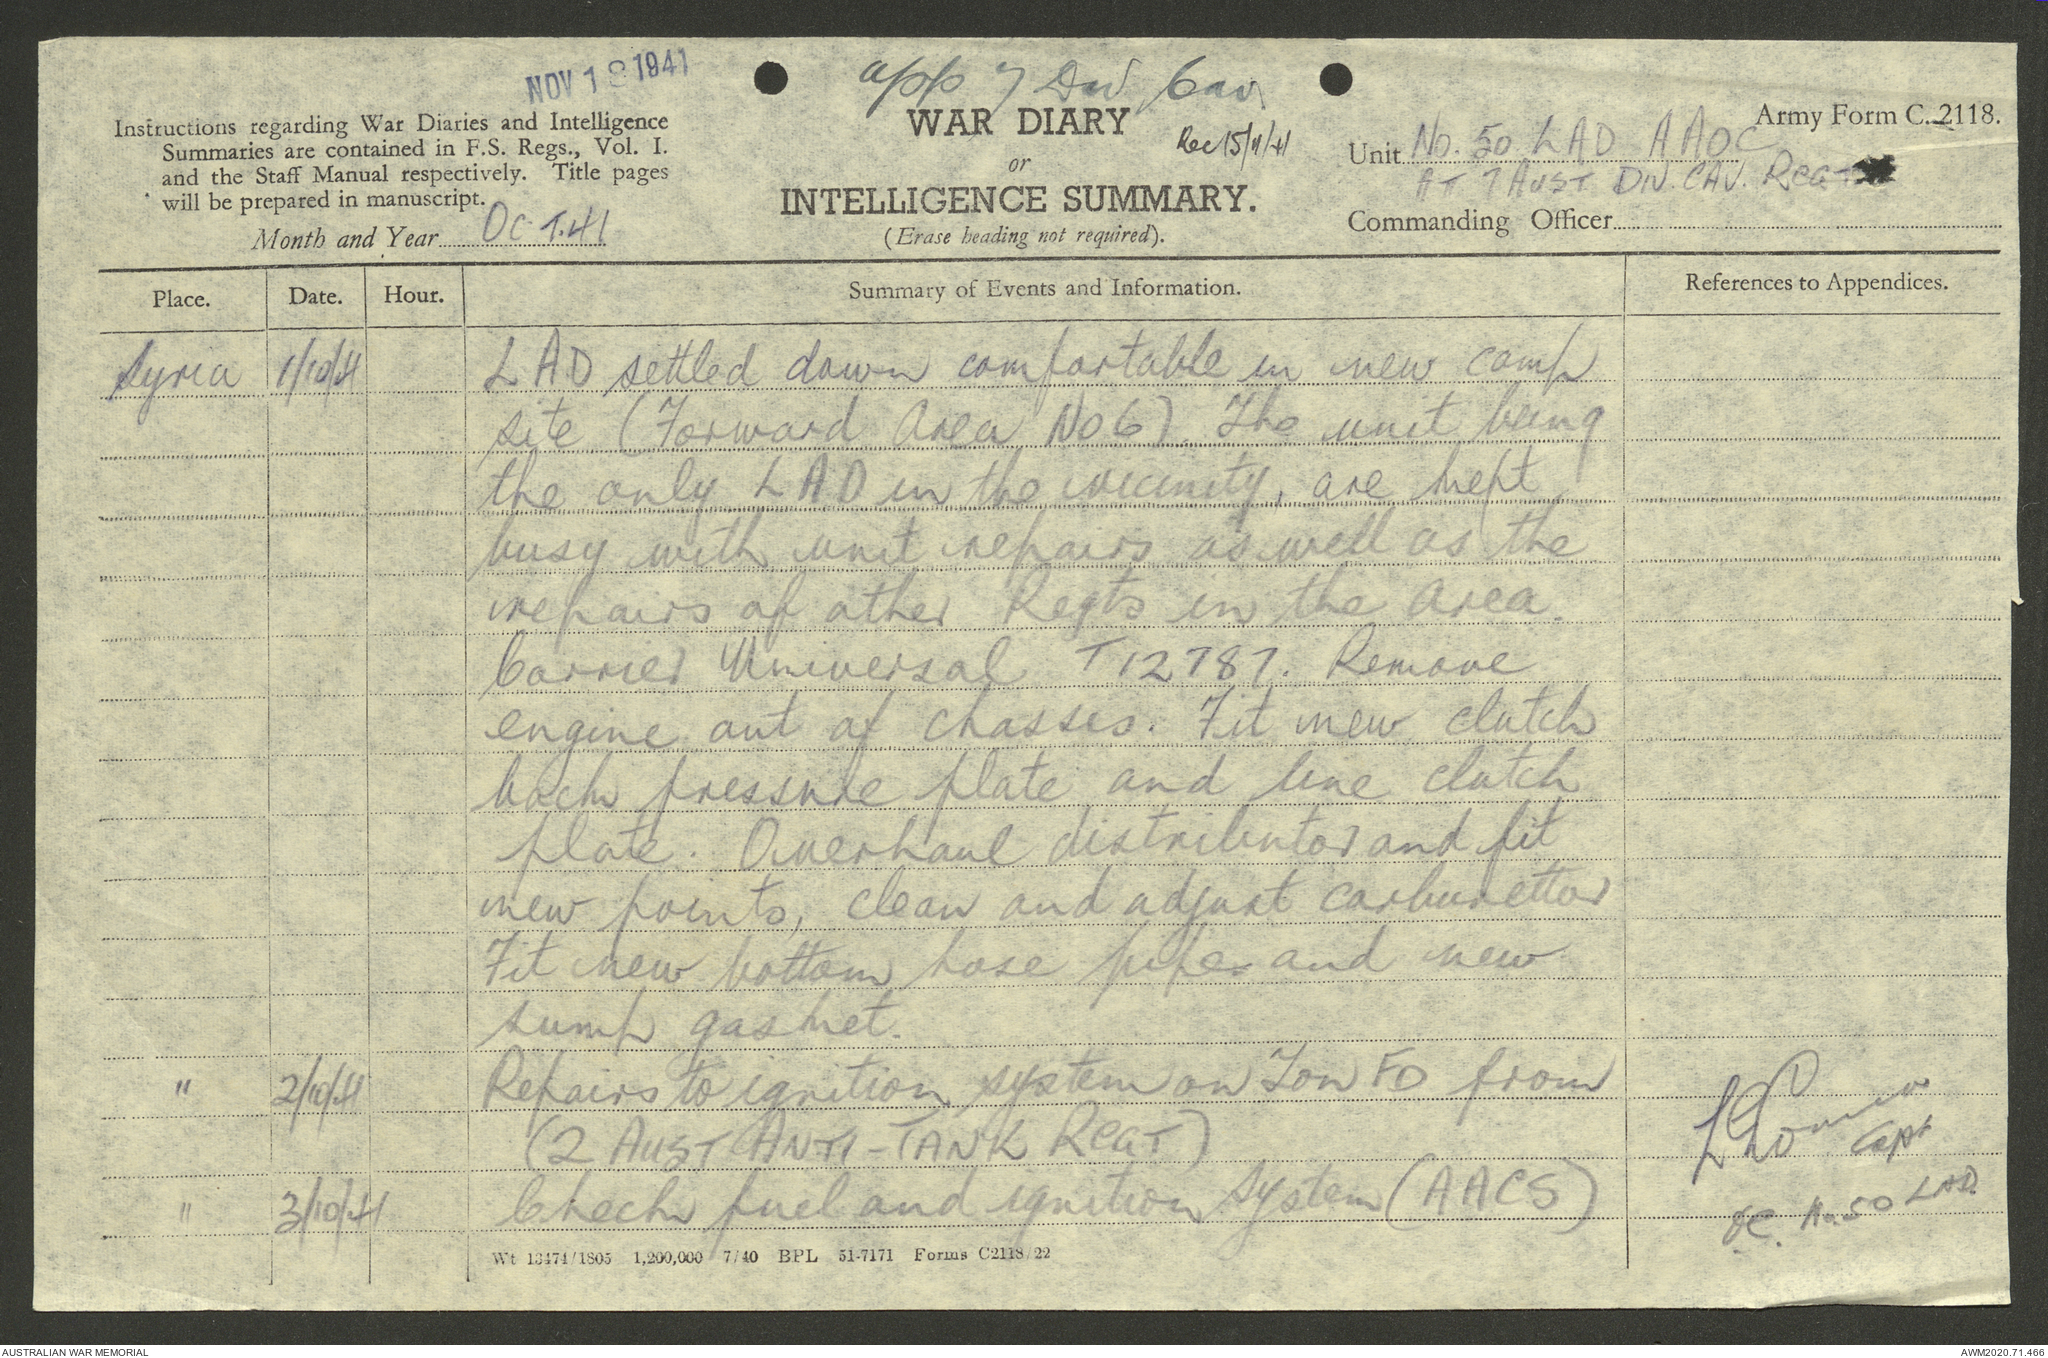 NOV 1 1941
app 7 Div Cav
Instructions regarding War Diaries and Intelligence
Summaries are contained in F.S. Regs., Vol. I.
and the Staff Manual respectively. Title pages
will be prepared in manuscript.
Month and Year OCT. 41
WAR DIARY
Rec 15/11/41
or
INTELLIGENCE SUMMARY.
(Erase heading not required).
Army Form C. 2118.
Unit No. 50 LAD AAOC
AT 7 AUST DIV. CAV. REGT
Commanding Officer
Place. Date. Hour. Summary of Events and Information. References to Appendices.
Syria 1/10/41 LAD settled down comfortable in new camp
site (Forward Area No 6). The unit being
the only LAD in the vicinity, are kept
busy with unit repairs as well as the
repairs of other Regts in the area.
Carrier Universal T12787. Remove
engine out of chasses. Fit new clutch
back pressure plate and line clutch
plate. Overhaul distributor and fit
new points, clean and adjust carburettor
Fit new bottom hose pipe and new
sump gasket.
" 2/10/41 Repairs to ignition system on Ton FD from
(2 AUST ANTI-TANK REGT)
" 3/10/41 Check fuel and ignition system (AACS)
Capt
OC. No 50 LAD.
Wt 13474/1805 1,200,000 7/40 BPL 51-7171 Forms C2118/22
AUSTRALIAN WAR MEMORIAL
AWM2020.71.466